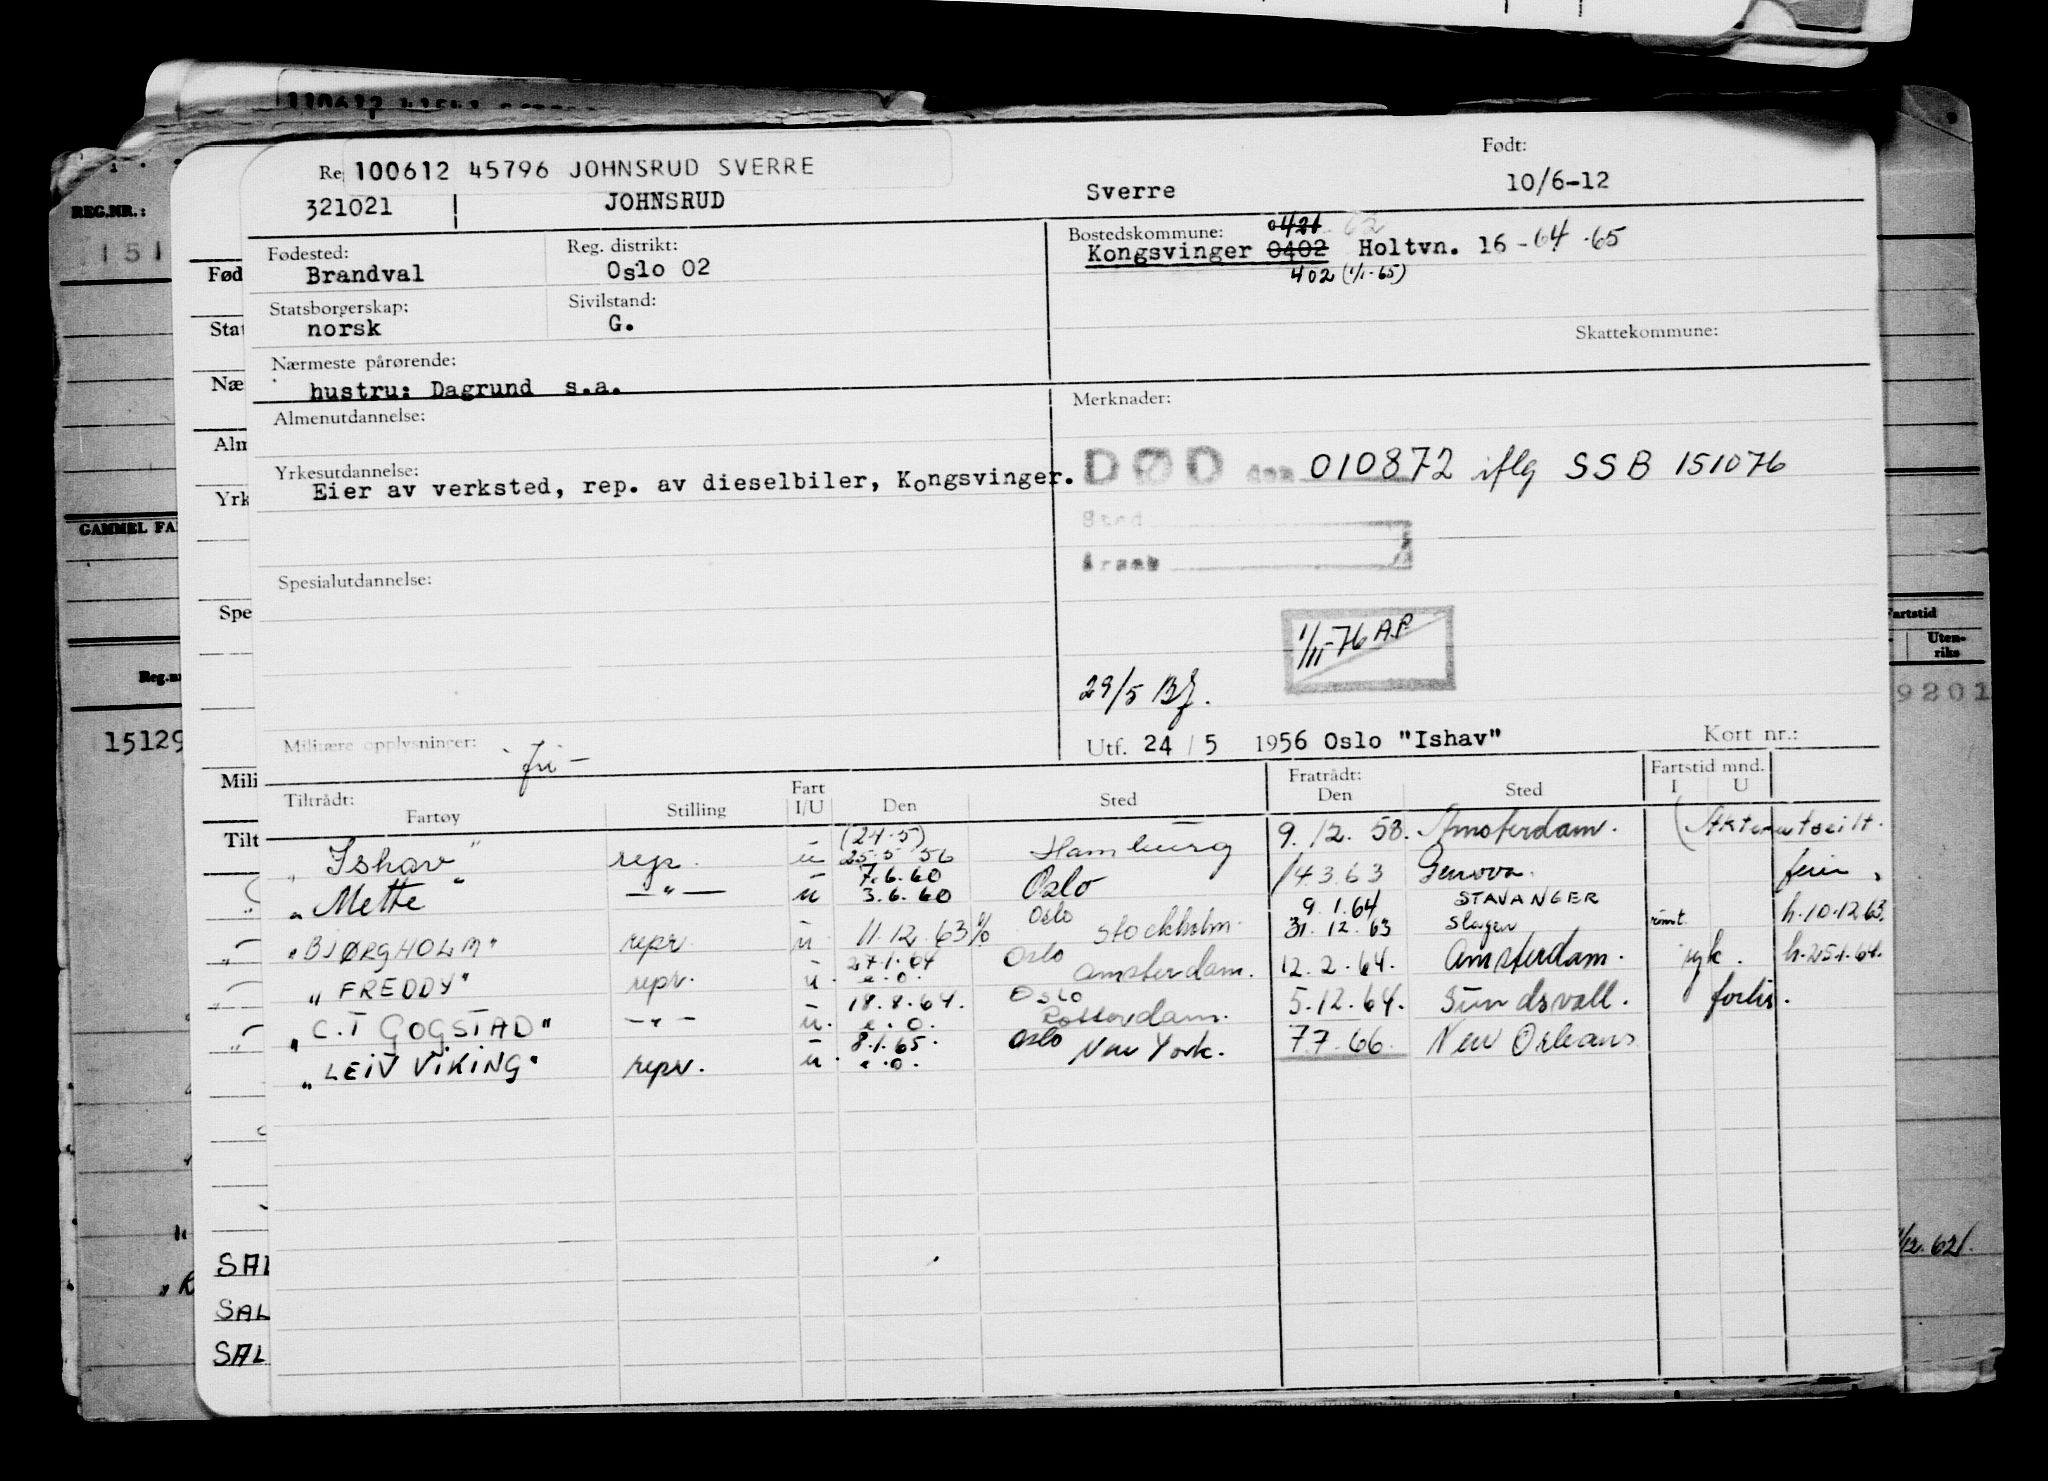 110612
REG.NR.:
151
GAMMEL FA
Reg.n
15129
Fød
Stat
Næ
Alm
Yrk
Spe
Mili
Tilt
SAL
SAL
SAL
artstid
Uten-
riks
9201
12.62
Re 100612 45796 JOHNSRUD SVERRE
Født:
321021 JOHNSRUD Sverre 10/6-12
Fødested: Reg. distrikt: Bostedskommune: 0421 62
Brandval Oslo 02 Kongsvinger 0402 Holtvn. 16 -64 -65
402 (1/1-65)
Statsborgerskap: Sivilstand:
norsk G.
Skattekommune:
Nærmeste pårørende:
hustru: Dagrund s.a.
Almenutdannelse: Merknader:
Yrkesutdannelse:
Eier av verksted, rep. av dieselbiler, Kongsvinger.
DØD den 010872 iflg SSB 151076
Sted
Årsak
Spesialutdannelse:
1/11-76 A.P
29/5 BJ.
Militære opplysninger: fri - Utf. 24/5 1956 Oslo "Ishav" Kort nr.:
Tiltrådt: Fart Fratrådt: Fartstid mnd.
Fartøy Stilling I/U Den Sted Den Sted I U
(24.5)
"Ishav" rep. u 25.5 56 Hamburg 9.12.58. Amsterdam.
7.6.60
"Mette" —"— u 3.6.60 Oslo 14.3.63 Genova. ferie
Oslo 9.1.64 STAVANGER
"BJØRGHOLM" repr. u 11.12.63 Stockholm. 31.12.63 Slagen rømt h.10.12.63.
27.1.64 Oslo
"FREDDY" repr. u. e.o. Amsterdam. 12.2.64. Amsterdam. syk. h.25.1.64.
18.8.64. Oslo
"C.T GOGSTAD" —"— u. e.o. Rotterdam. 5.12.64. Sundsvall. forlis.
8.1.65. Oslo
"LEIV VIKING" repr. u. e.o. New York. 7.7.66. New Orleans